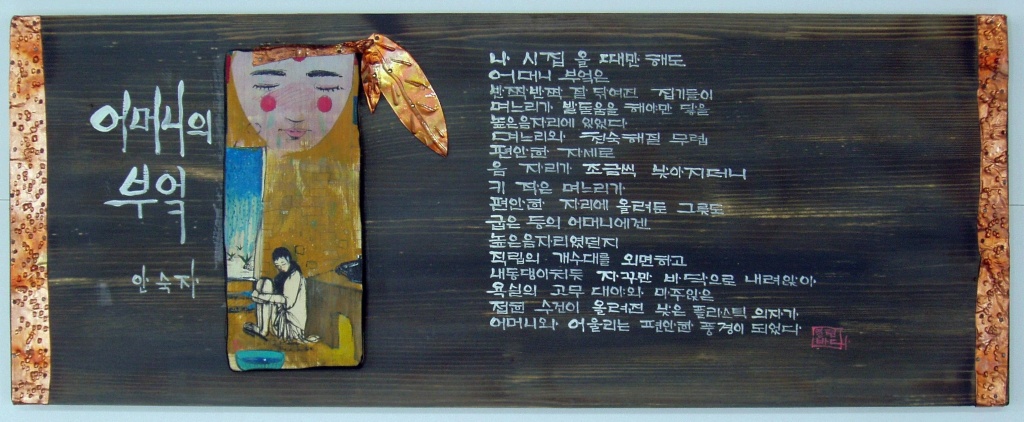 어머니의
부엌
안숙자
나 시집 올 때만 해도
어머니 부엌은
반짝반짝 잘 닦여진 집기들이
며느리가 발돋움을 해야만 닿은
높은음자리에 있었다
며느리와 친숙해질 무렵
편안한 자세로
음 자리가 조금씩 낮아지더니
키 작은 며느리가
편안한 자리에 올려둔 그릇들
굽은 등의 어머니에겐
높은음자리였던지
직립의 개수대를 외면하고
내동댕이쳐듯 자꾸만 바닥으로 내려앉아
욕실의 고무 대야와 마주앉은
접힌 수건이 올려진 낮은 플라스틱 의자가
어머니와 어울리는 편안한 풍경이 되었다